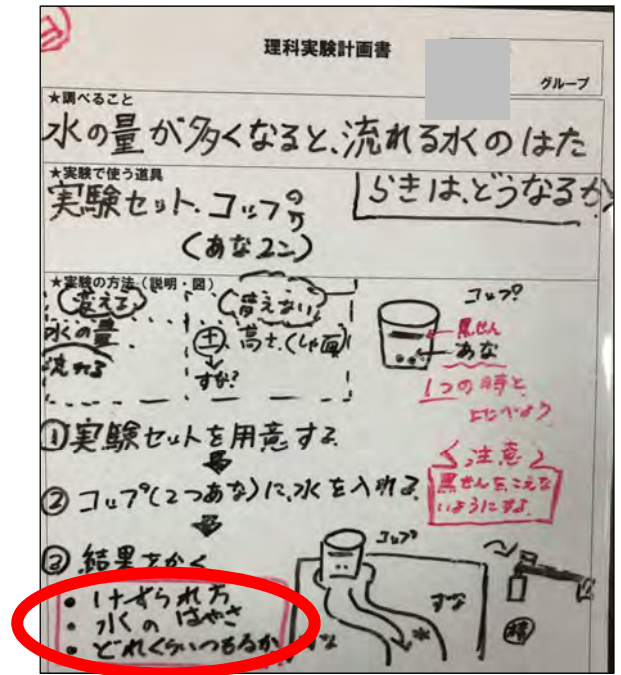 理科実験計画書
グループ
★調べること
水の量が多くなると、流れる水のはた
らきは、どうなるか
★実験で使う道具
実験セット、コップ
(あな2こ)
★実験の方法(説明・図)
変える
水の量
流れる
変えない
土、高さ、(しゃ面)
すな?
コップ
黒せん
あな
1つの時と
比べよう
①実験セットを用意する
注意
黒せんをこえな
いようにする
②コップ(2つあな)に、水を入れる
③結果をかく
・けずられ方
・水のはやさ
・どれくらいつもるか
コップ
すな
すな
横